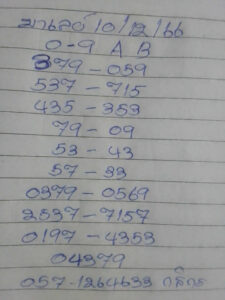 มาเลย์ 10/12/66
0-9 A B
379 - 059
537 - 715
435 - 353
79 - 09
53 - 43
57 - 33
0379 - 0569
2537 - 7157
0197 - 4353
04379
057-1264633